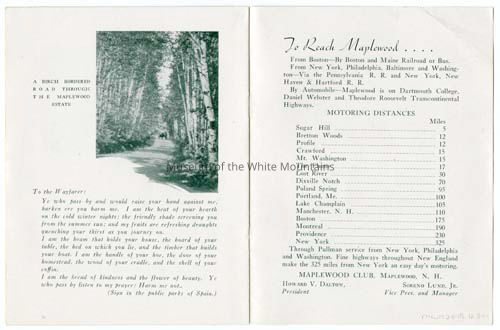 A BIRCH BORDERED
ROAD THROUGH
THE MAPLEWOOD
ESTATE
To the Wayfarer:
Ye who pass by and would raise your hand against me,
harken ere you harm me. I am the heat of your hearth
on the cold winter nights; the friendly shade screening you
from the summer sun; and my fruits are refreshing draughts
quenching your thirst as you journey on.
I am the beam that holds your house, the board of your
table, the bed on which you lie, and the timber that builds
your boat. I am the handle of your hoe, the door of your
homestead, the wood of your cradle, and the shell of your
coffin.
I am the bread of kindness and the flower of beauty. Ye
who pass by listen to my prayer: Harm me not.
(Sign in the public parks of Spain.)
To Reach Maplewood ....
From Boston—By Boston and Maine Railroad or Bus.
From New York, Philadelphia, Baltimore and Washing-
ton—Via the Pennsylvania R. R. and New York, New
Haven & Hartford R. R.
By Automobile—Maplewood is on Dartmouth College,
Daniel Webster and Theodore Roosevelt Transcontinental
Highways.
MOTORING DISTANCES
Miles
Sugar Hill 5
Bretton Woods 12
Profile 12
Crawford 15
Mt. Washington 15
17
Lost River 30
Dixville Notch 70
Poland Spring 95
Portland, Me. 100
Lake Champlain 105
Manchester, N. H. 110
Boston 175
Montreal 190
Providence 230
New York 325
Through Pullman service from New York, Philadelphia
and Washington. Fine highways throughout New England
make the 325 miles from New York an easy day's motoring.
MAPLEWOOD CLUB, MAPLEWOOD, N. H.
HOWARD V. DALTON, SOREND LUND, JR.
President Vice Pres. and Manager
Museum of the White Mountains